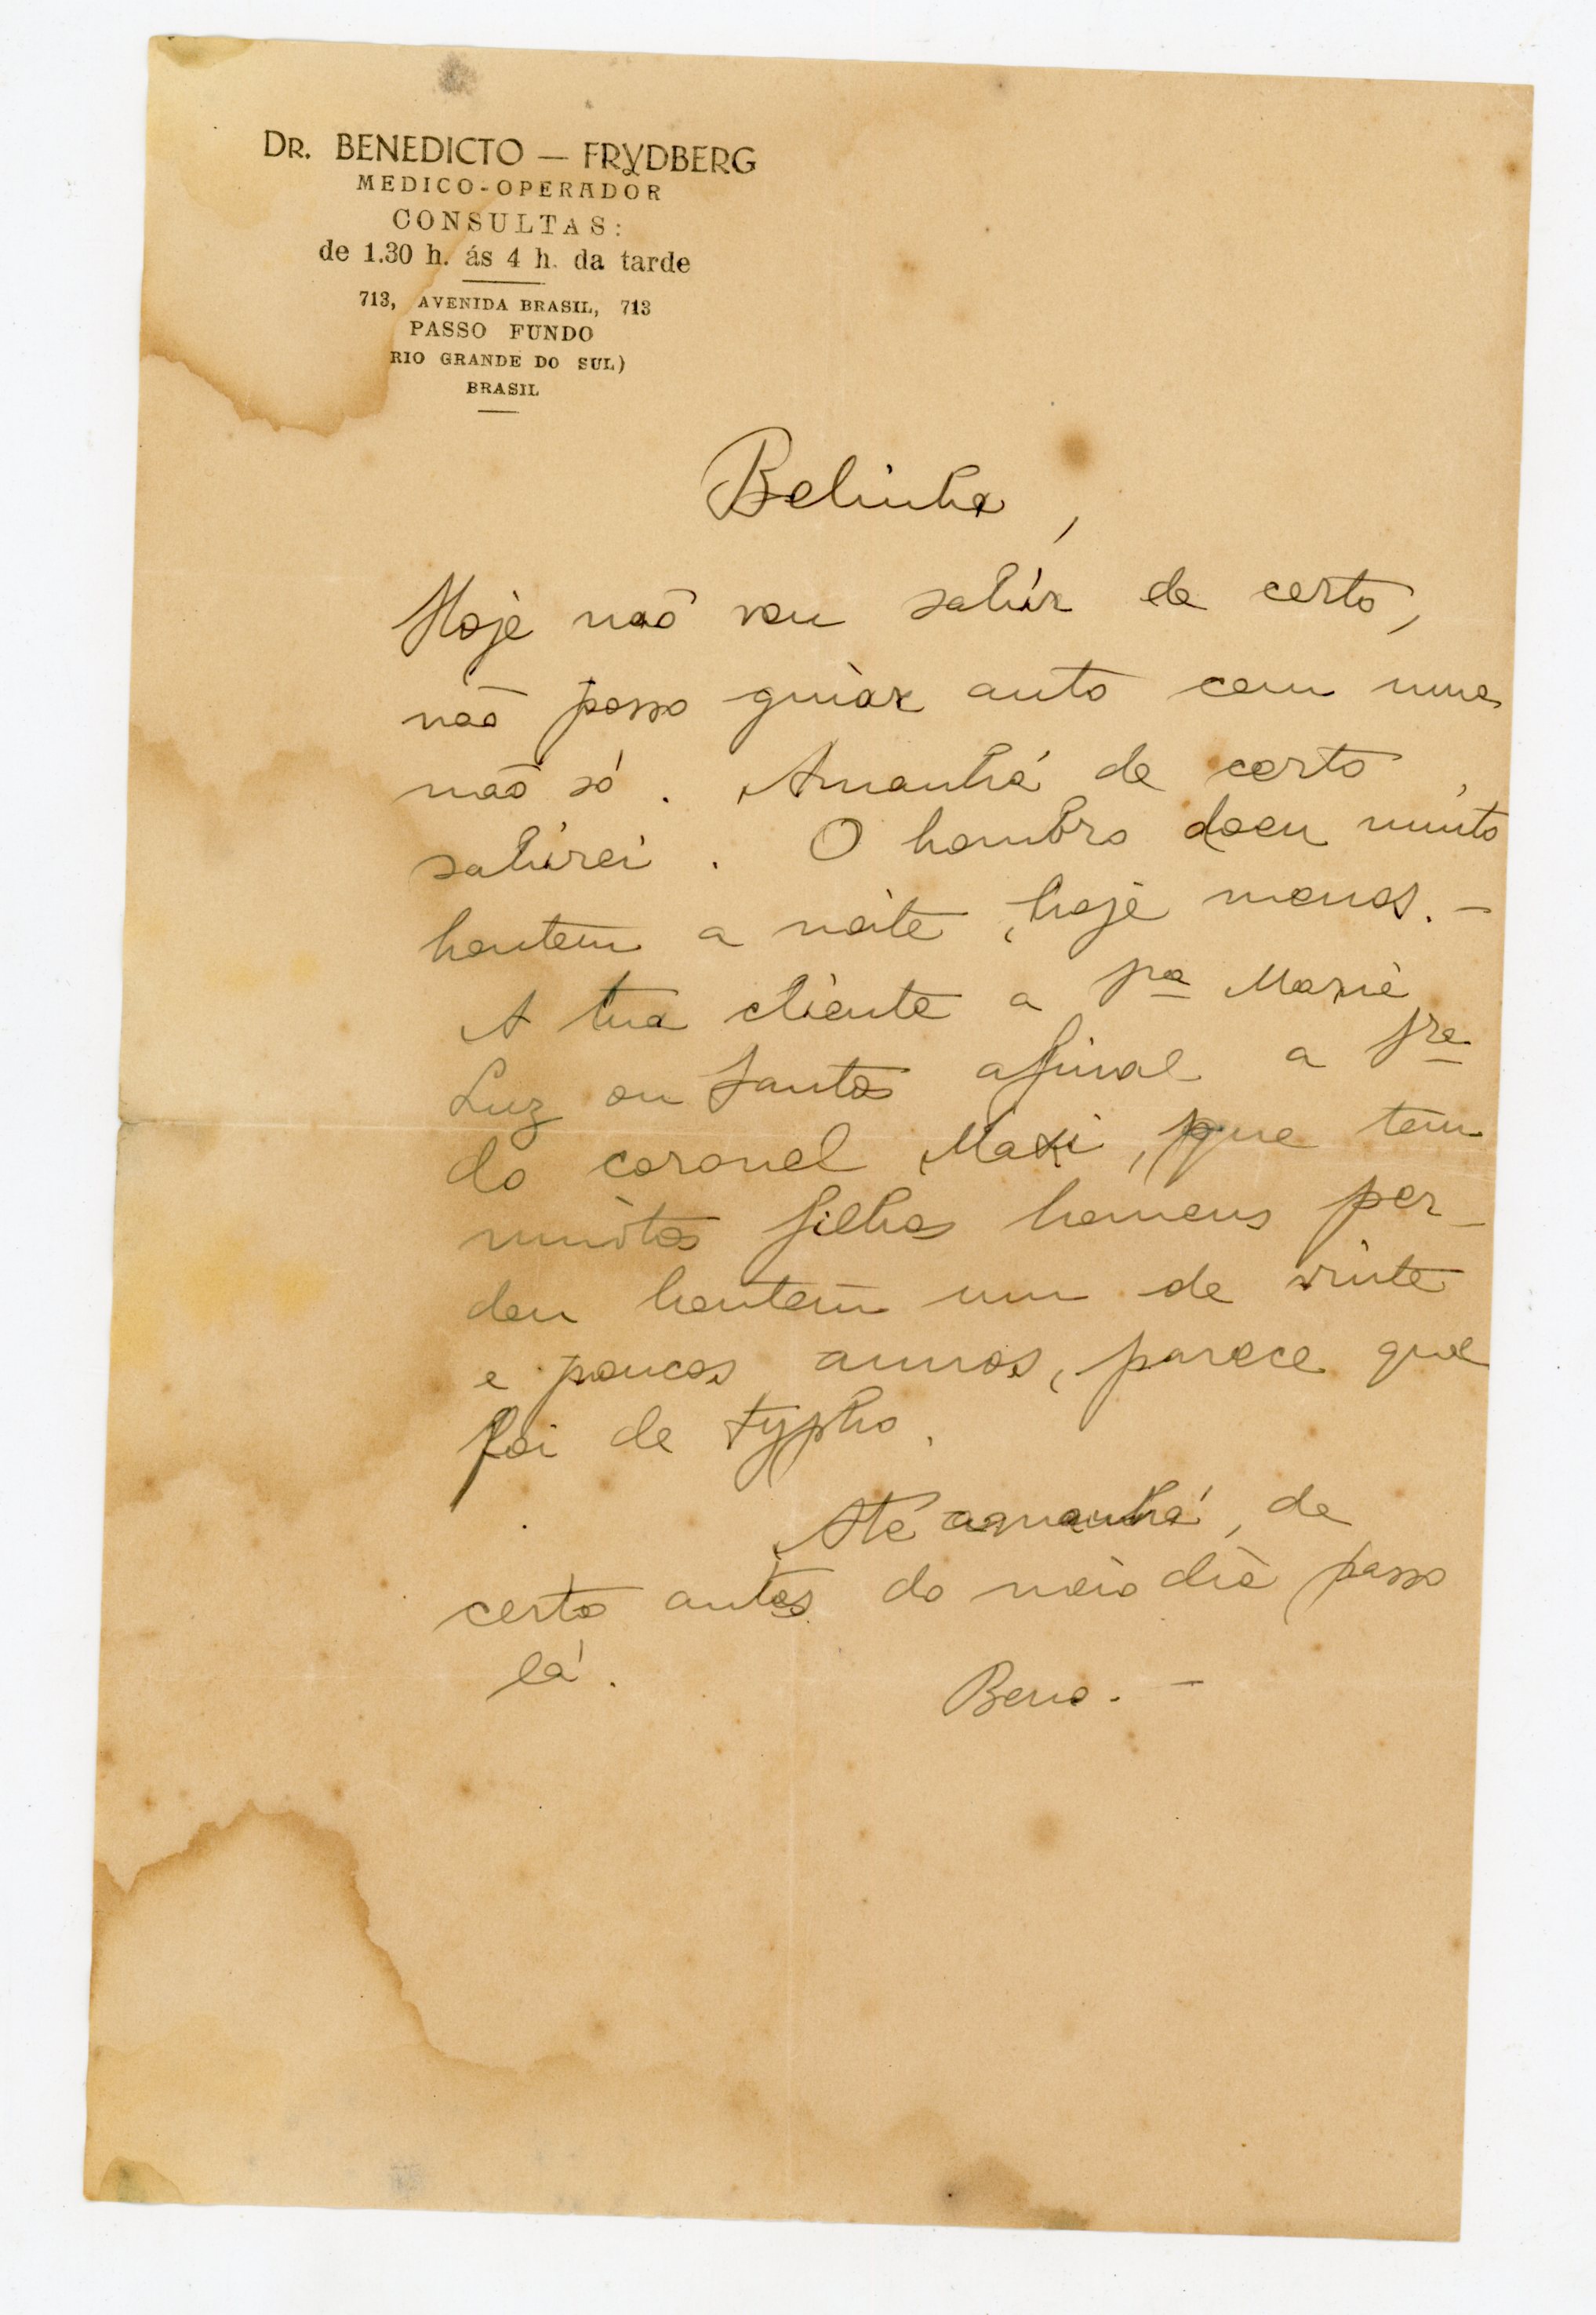 DR. BENEDICTO — FRYDBERG
MEDICO-OPERADOR
CONSULTAS:
de 1.30 h. ás 4 h. da tarde
713, AVENIDA BRASIL, 713
PASSO FUNDO
RIO GRANDE DO SUL)
BRASIL
Belinha,
Hoje não vou sahir de certo,
não posso guiar auto com uma
mão só. Amanhã de certo
sahirei. O hombro doeu muito
hontem a noite, hoje menos. —
A tua cliente a Sra Maria
Luz ou Santos afinal a Sra
do coronel Maxi, que tem
muitos filhos homens per-
deu hontem um de vinte
e poucos annos, parece que
foi de typho.
Até amanhã, de
certo antes do meio dia passo
lá.
Beno. —